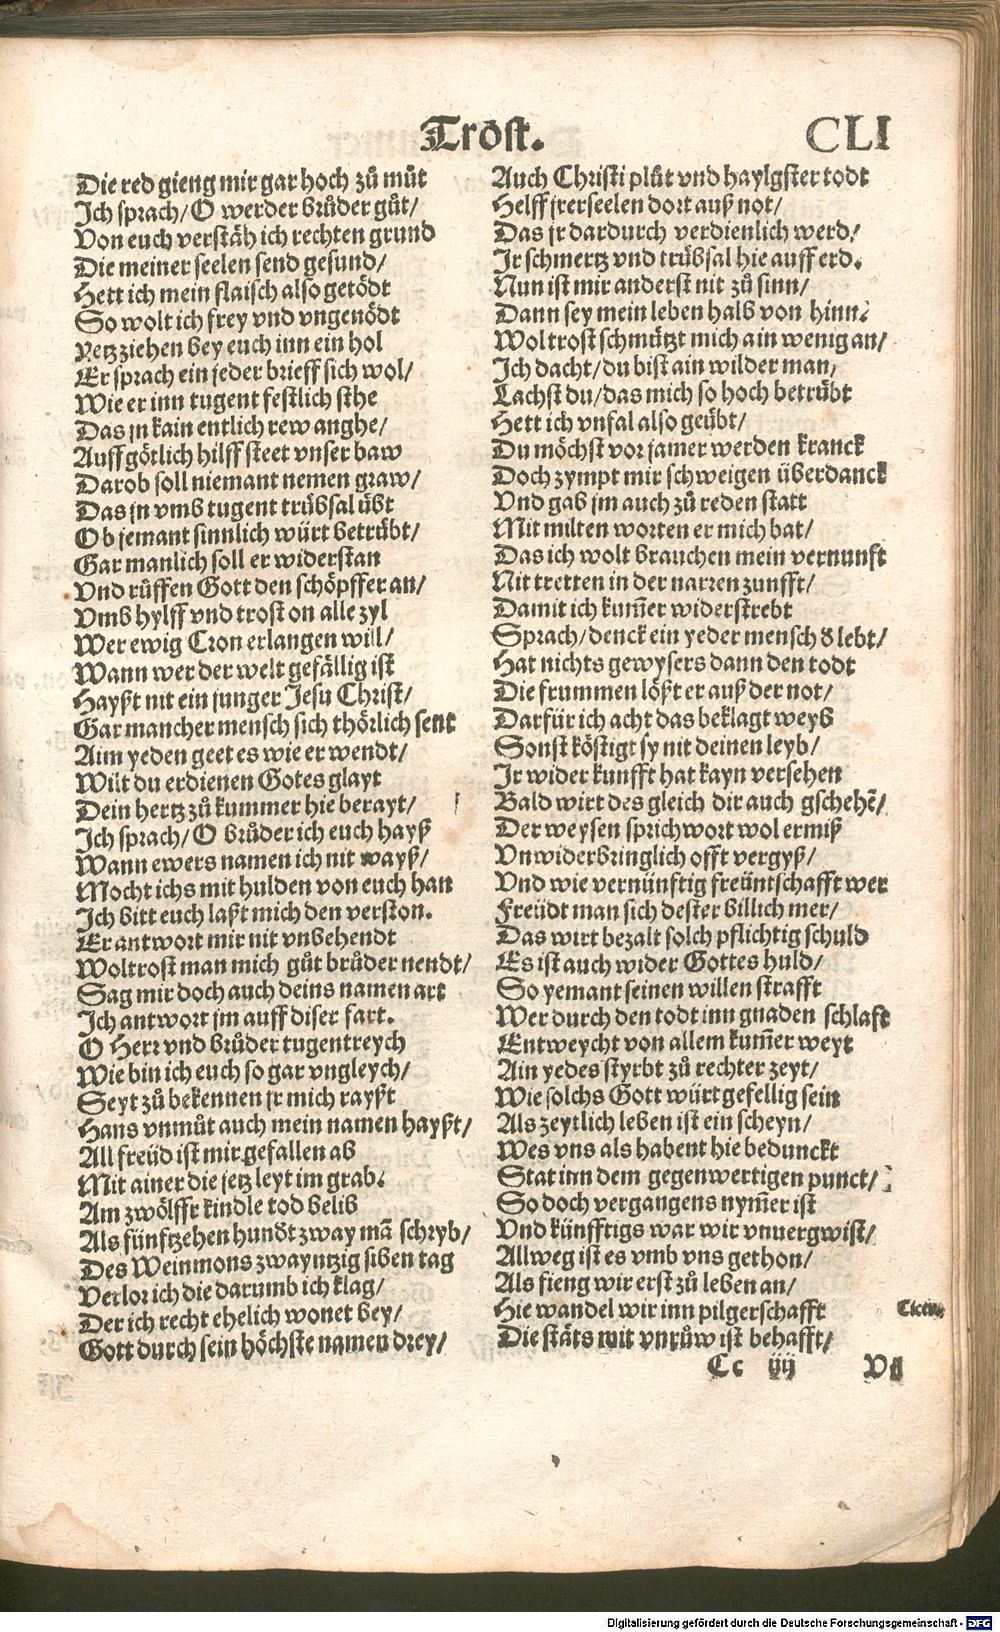 Tröst.
CLI
Die red gieng mir gar hoch zů můt
Ich sprach/ O werder brůder gůt/
Von euch verstäh ich rechten grund
Die meiner seelen send gesund/
Hett ich mein flaisch also getödt
So wolt ich frey vnd vngenödt
Yetz ziehen bey euch inn ein hol
Er sprach ein jeder brieff sich wol/
Wie er inn tugent festlich sthe
Das jn kain entlich rew anghe/
Auff götlich hilff steet vnser baw
Darob soll niemant nemen graw/
Das jn vmb tugent trübsal übt
Ob jemant sinnlich würt betrübt/
Gar manlich soll er widerstan
Vnd rüffen Gott den schöpffer an/
Vmb hylff vnd trost on alle zyl
Wer ewig Cron erlangen will/
Wann wer der welt gefällig ist
Hayßt nit ein junger Jesu Christ/
Gar mancher mensch sich thörlich sent
Aim yeden geet es wie er wendt/
Wilt du erdienen Gotes glayt
Dein hertz zů kummer hie berayt/
Ich sprach/ O brůder ich euch hayß
Wann ewers namen ich nit wayß/
Mocht ichs mit hulden von euch han
Ich bitt euch laßt mich den verston.
Er antwort mir nit vnbehendt
Woltrost man mich gůt brůder nendt/
Sag mir doch auch deins namen art
Ich antwort jm auff diser fart.
O Herr vnd brůder tugentreych
Wie bin ich euch so gar vngleych/
Seyt zů bekennen jr mich rayßt
Hans vnmůt auch mein namen hayßt/
All freüd ist mir gefallen ab
Mit ainer die jetz leyt im grab.
Am zwölffr kindle tod belib
Als fünftzehen hundt zway mã schryb/
Des Weinmons zwayntzig siben tag
Verlor ich die darumb ich klag/
Der ich recht ehelich wonet bey/
Gott durch sein höchste namen drey/
Auch Christi plůt vnd haylgster todt
Helff jrer seelen dort auß not/
Das jr dardurch verdienlich werd/
Ir schmertz vnd trübsal hie auff erd.
Nun ist mir anderst nit zů sinn/
Dann sey mein leben halb von hinn.
Woltrost schmützt mich ain wenig an/
Ich dacht/ du bist ain wilder man/
Lachst du/ das mich so hoch betrübt
Hett ich vnfal also geübt/
Du möchst vor jamer werden kranck
Doch zympt mir schweigen überdanck
Vnd gab jm auch zů reden statt
Mit milten worten er mich bat/
Das ich wolt brauchen mein vernunft
Nit tretten in der narren zunfft/
Damit ich kum̃er widerstrebt
Sprach/ denck ein yeder mensch d lebt/
Hat nichts gewysers dann den todt
Die frummen lößt er auß der not/
Darfür ich acht das beklagt weyb
Sonst köstigt sy nit deinen leyb/
Ir wider kunfft hat kayn versehen
Bald wirt des gleich dir auch gschehẽ/
Der weysen sprichwort wol ermiß
Vnwiderbringlich offt vergyß/
Vnd wie vernünftig freüntschafft wer
Freüdt man sich dester billich mer/
Das wirt bezalt solch pflichtig schuld
Es ist auch wider Gottes huld/
So yemant seinen willen strafft
Wer durch den todt inn gnaden schlaft
Entweycht von allem kum̃er weyt
Ain yedes styrbt zů rechter zeyt/
Wie solchs Gott würt gefellig sein
Als zeytlich leben ist ein scheyn/
Wes vns als habent hie bedunckt
Stat inn dem gegenwertigen punct/
So doch vergangens nym̃er ist
Vnd künfftigs war wir vnuergwist/
Allweg ist es vmb vns gethon/
Als fieng wir erst zů leben an/
Hie wandel wir inn pilgerschafft
Die stäts mit vnrůw ist behafft/
Cc iiij
Digitalisierung gefördert durch die Deutsche Forschungsgemeinschaft - DFG